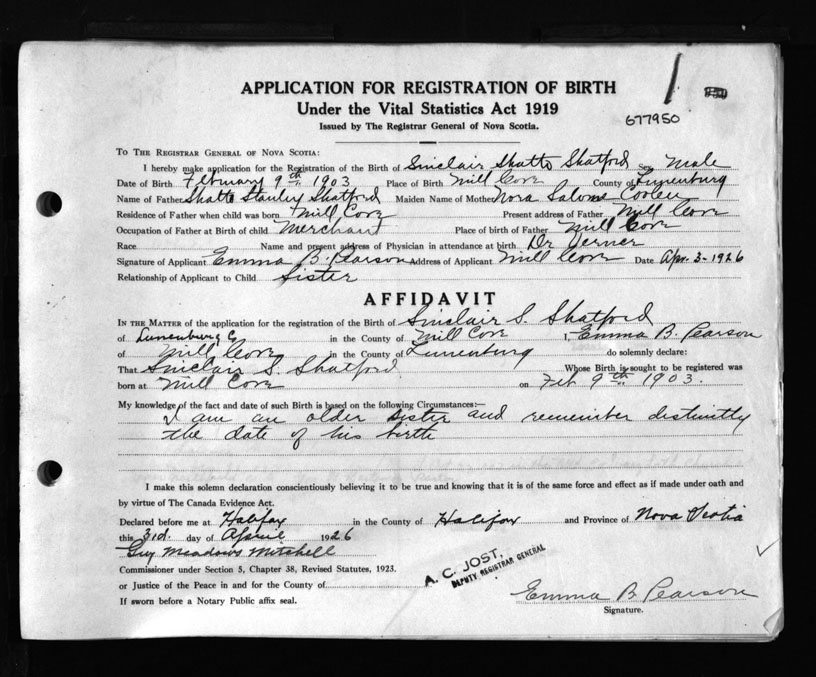 APPLICATION FOR REGISTRATION OF BIRTH
Under the Vital Statistics Act 1919
Issued by The Registrar General of Nova Scotia.
677950
TO THE REGISTRAR GENERAL OF NOVA SCOTIA:
I hereby make application for the Registration of the Birth of Sinclair Shatto Shatford Sex Male
Date of Birth February 9th 1903 Place of Birth Mill Cove County of Lunenburg
Name of Father Shatto Stanley Shatford Maiden Name of Mother Nora Salome Coolen
Residence of Father when child was born Mill Cove Present address of Father Mill Cove
Occupation of Father at Birth of child Merchant Place of birth of Father Mill Cove
Race Name and present address of Physician in attendance at birth Dr
Signature of Applicant Emma B. Pearson Address of Applicant Mill Cove Date Apr. 3-1926
Relationship of Applicant to Child Sister
AFFIDAVIT
IN THE MATTER of the application for the registration of the Birth of Sinclair S. Shatford
of Lunenburg Co in the County of Mill Cove I, Emma B. Pearson
of Mill Cove in the County of Lunenburg do solemnly declare:
That Sinclair S. Shatford Whose Birth is sought to be registered was
born at Mill Cove on Feb. 9th 1903.
My knowledge of the fact and date of such Birth is based on the following Circumstances:—
I am an older sister and remember distinctly
the date of his birth
I make this solemn declaration conscientiously believing it to be true and knowing that it is of the same force and effect as if made under oath and
by virtue of The Canada Evidence Act.
Declared before me at Halifax in the County of Halifax and Province of Nova Scotia
this 3rd. day of April 1926
Guy Meadows Mitchell
Commissioner under Section 5, Chapter 38, Revised Statutes, 1923.
A. C. JOST,
DEPUTY REGISTRAR GENERAL
or Justice of the Peace in and for the County of
Emma B Pearson
If sworn before a Notary Public affix seal.
Signature.